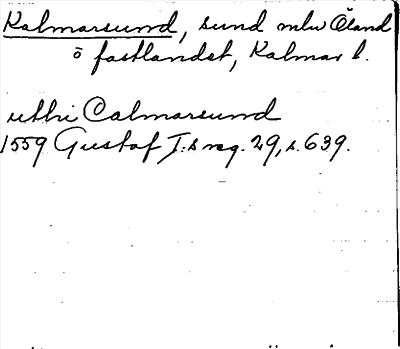 Kalmarsund, sund mlw Öland
o fastlandet, Kalmar l.
uthi Calmarsund
1559 Gustaf I:s reg. 29, s. 639.